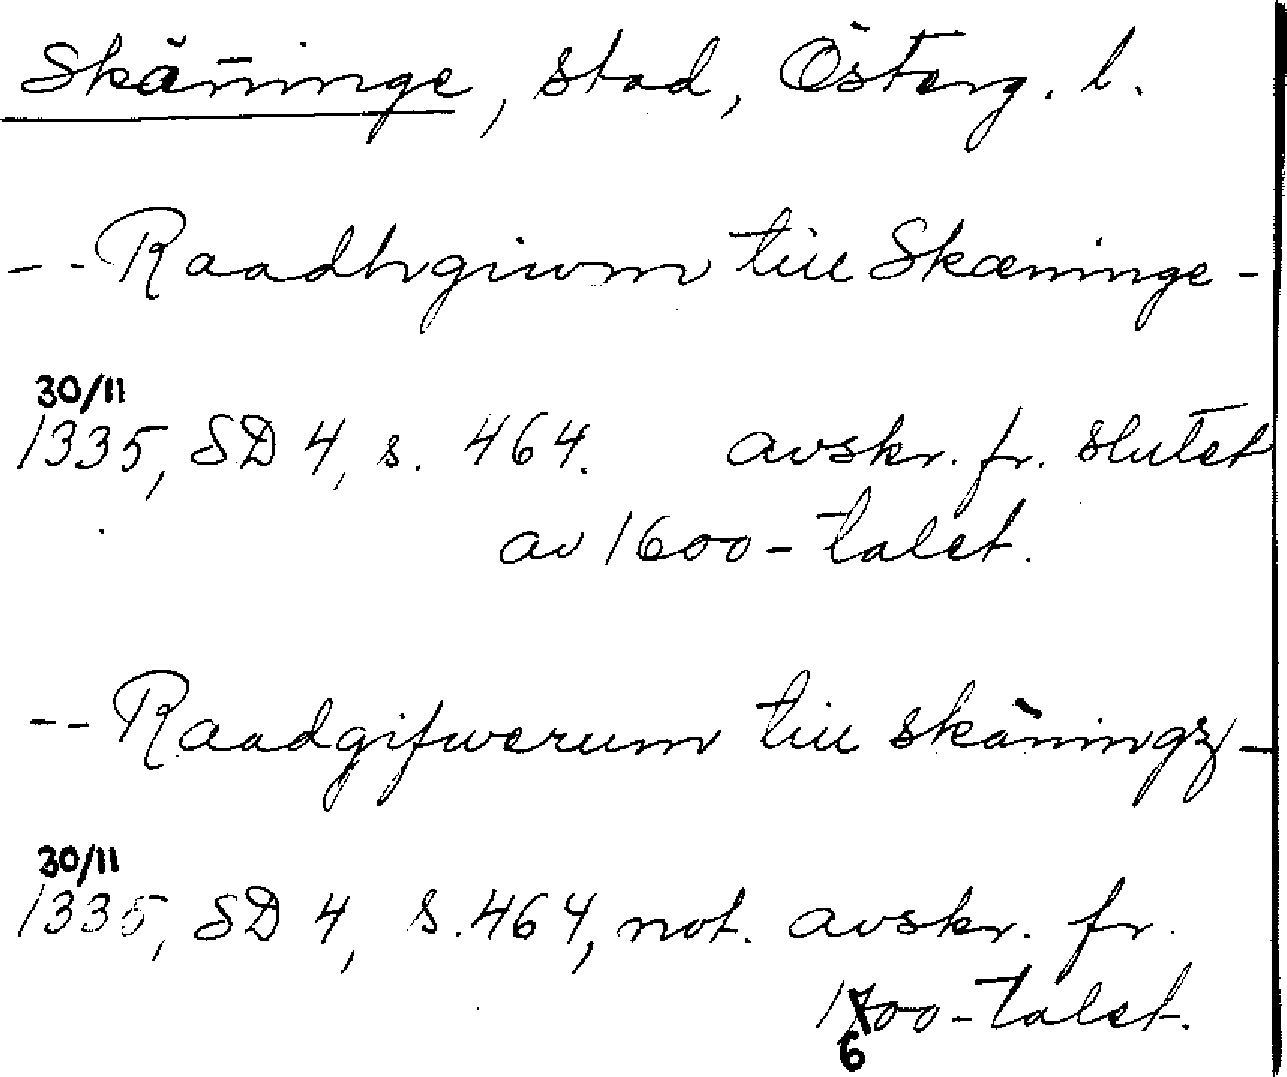 Skänninge, stad, Österg. l.
-- Raadhgiwom till Skæninge -
30/11
1335, SD 4, s. 464. avskr. fr. slutet
av 1600-talet.
-- Raadgifwerum till skäningz -
30/11
1335, SD 4, s. 464, not. avskr. fr.
1700-talet.
6